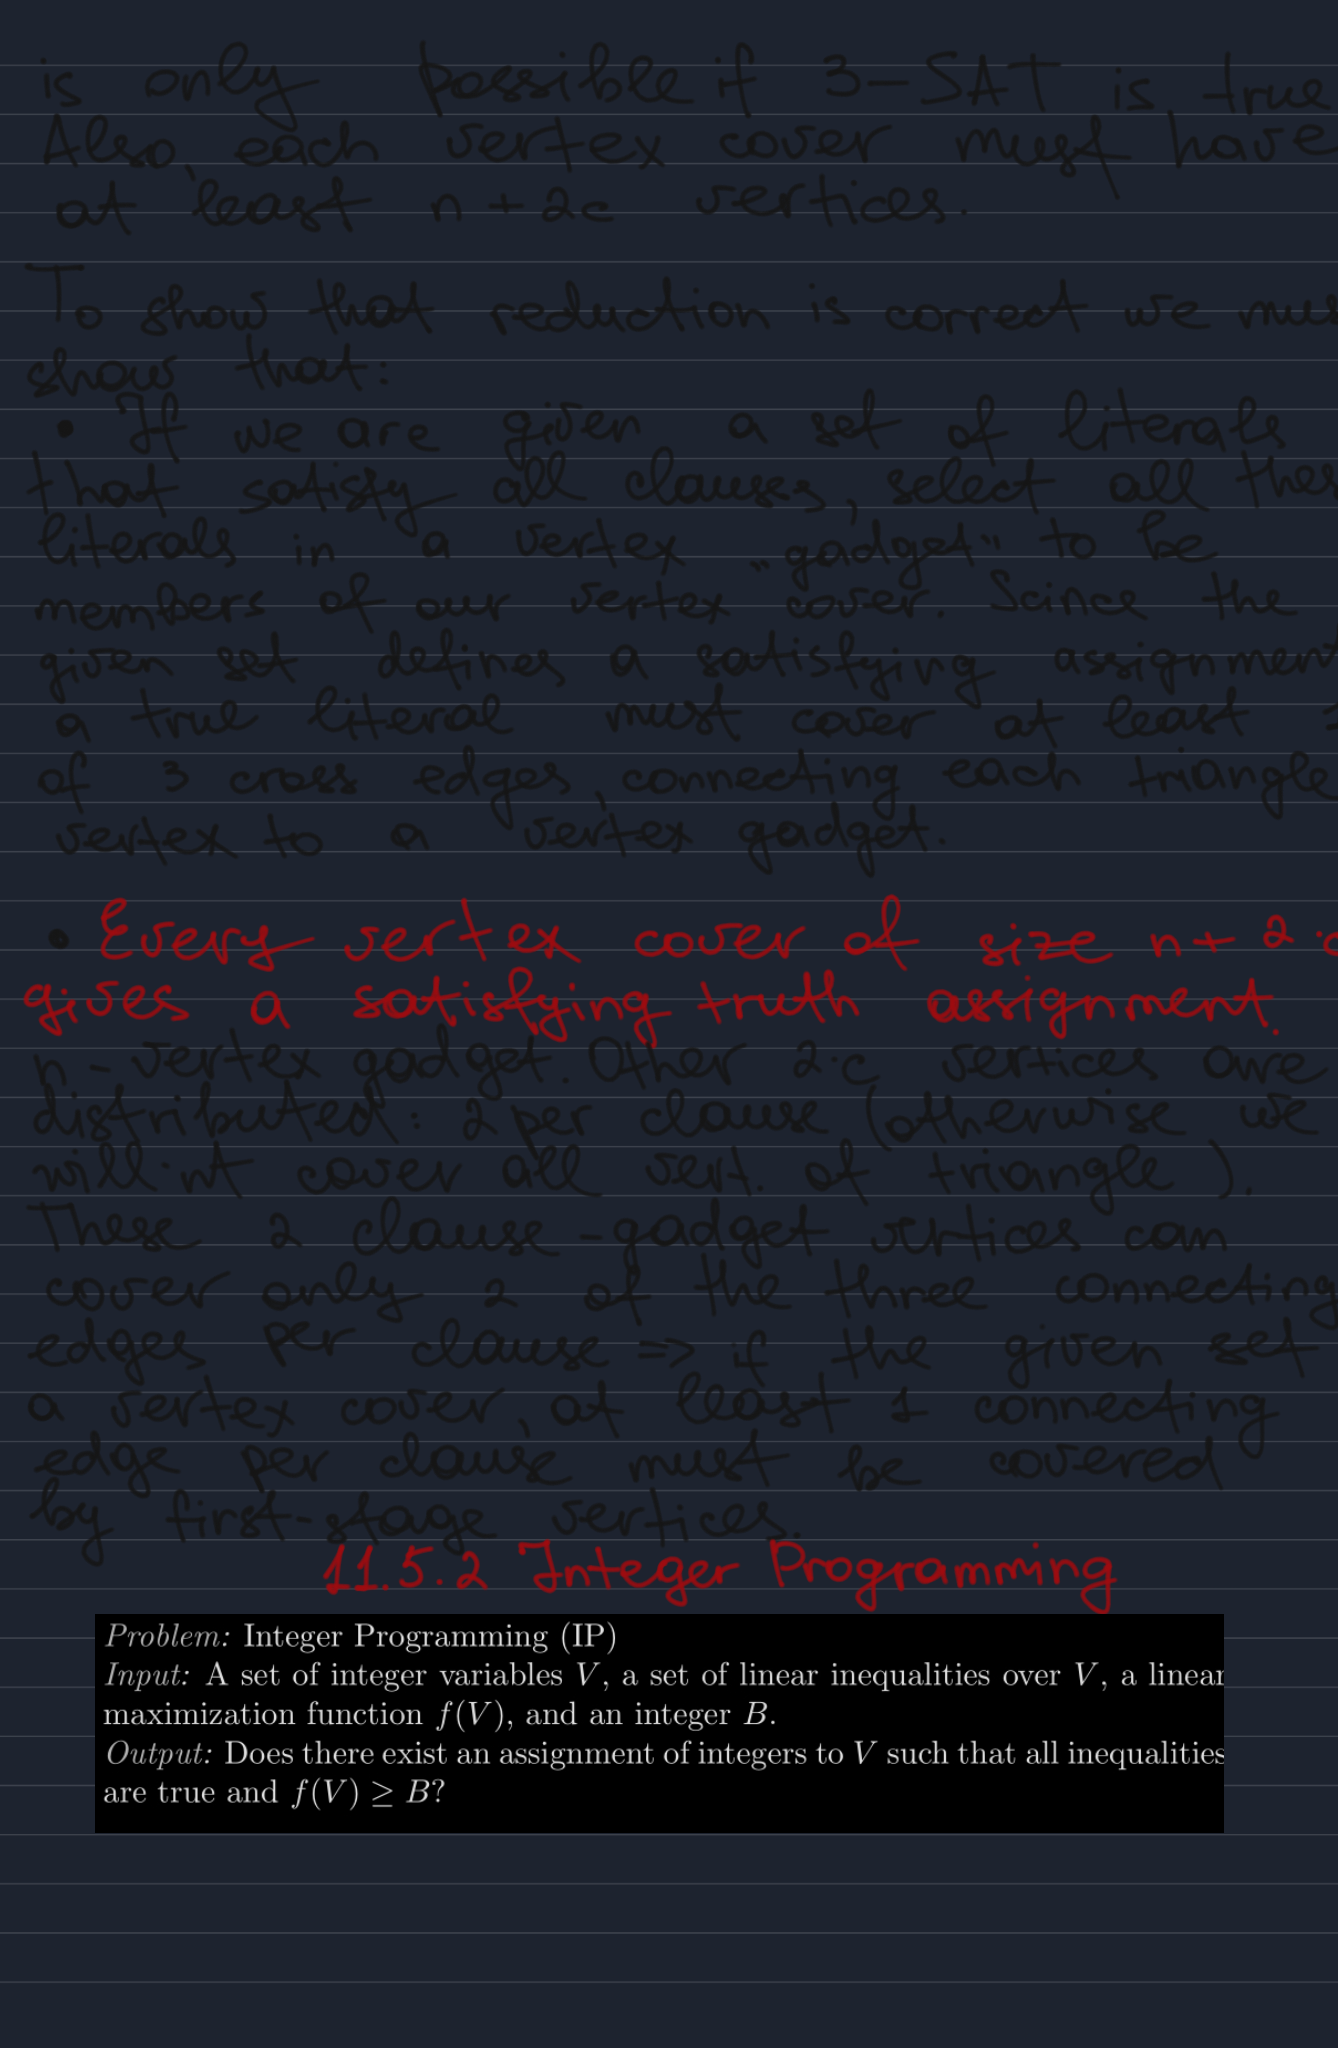 is only possible if 3-SAT is true
Also, each vertex cover must have
at least n + 2c vertices.
To show that reduction is correct we mus
show that:
• If we are given a set of literals
that satisfy all clauses, select all thes
literals in a vertex „gadget" to be
members of our vertex cover. Scince the
given set defines a satisfying assignment
a true literal must cover at least
of 3 cross edges, connecting each triangle
vertex to a vertex gadget.
• Every vertex cover of size n + 2·c
gives a satisfying truth assignment.
n - vertex gadget. Other 2·c vertices are
distributed: 2 per clause (otherwise we
will'nt cover all vert. of triangle).
These 2 clause-gadget vertices can
cover only 2 of the three connecting
edges per clause => if the given set
a vertex cover, at least 1 connecting
edge per clause must be covered
by first-stage vertices.
11.5.2 Integer Programming
Problem: Integer Programming (IP)
Input: A set of integer variables V, a set of linear inequalities over V, a linear
maximization function f(V), and an integer B.
Output: Does there exist an assignment of integers to V such that all inequalities
are true and f(V) ≥ B?